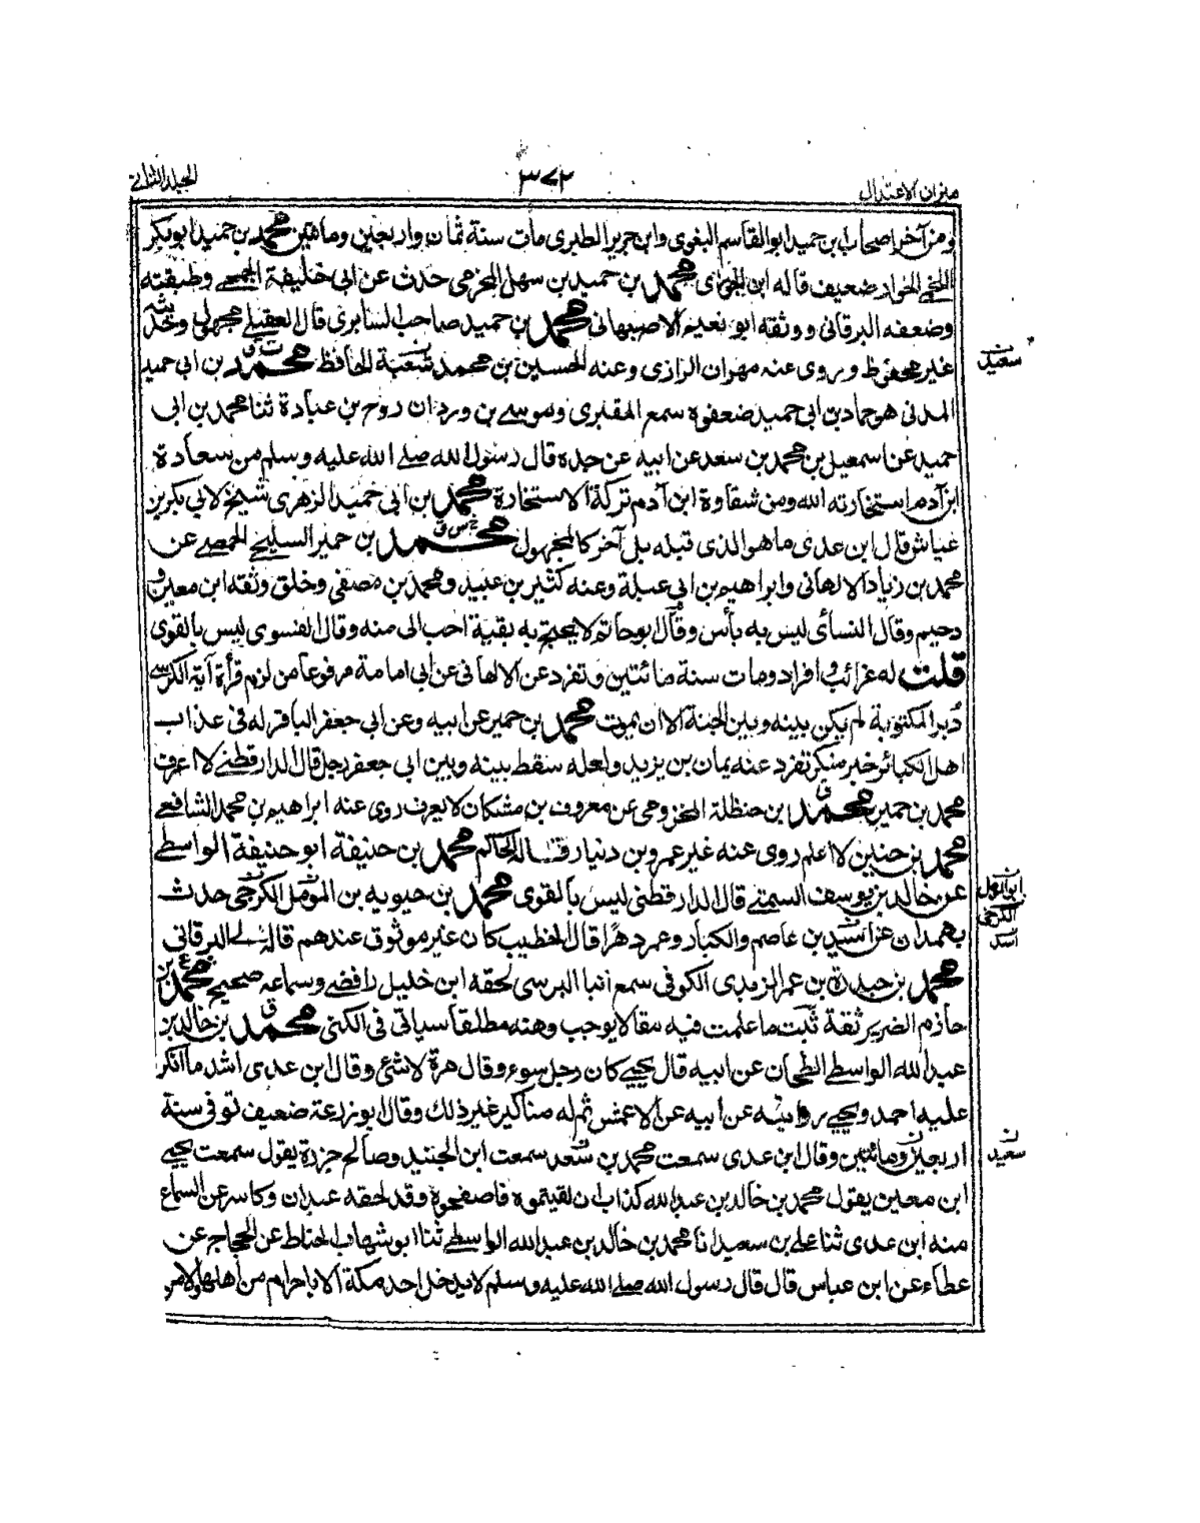 ميزان الاعتدال
٣٧٢
الجلد الثانى
ومن آخر اصحاب ابن حميد ابو القاسم البغوى وابن جرير الطبرى مات سنة ثمان واربعين ومائتين محمد بن حميد ابو بكر
اللخمى الخزاز ضعيف قاله ابن الجوزى محمد بن حميد بن سهل المخرمى حدث عن ابى خليفة الجمحى وطبقته
وضعفه البرقانى ووثقه ابو نعيم الاصبهانى محمد بن حميد صاحب السابرى قال العقيلى مجهول وحديثه
غير محفوظ وروى عنه مهران الرازى وعنه الحسين بن محمد شعبة الحافظ محمد بن ابى حميد
سعيد
المدنى هو حماد بن ابى حميد ضعفوه سمع المقبرى وموسى بن وردان روح بن عبادة ثنا محمد بن ابى
حميد عن اسمعيل بن محمد بن سعد عن ابيه عن جده قال رسول الله صلى الله عليه وسلم من سعادة
ابن آدم استخارته الله ومن شقاوة ابن آدم تركة الاستخارة محمد بن ابى حميد الزهرى شيخ لابى بكر بن
عياش قال ابن عدى ما هو الذى قبله بلى آخر كالمجهول محمد بن حمير السليحى الحمصى عن
محمد بن زياد الالهانى وابراهيم بن ابى عبلة وعنه كثير بن عبيد ومحمد بن مصفى وخلق وثقه ابن معين و
دحيم وقال النسائى ليس به بأس وقال ابو حاتم لا يحتج به بقية احب الى منه وقال الفسوى ليس بالقوى
قلت له غرائب وافراد ومات سنة مائتين وتفرد عن الالهانى عن ابى امامة مرفوعا من لزم قرأة آية الكرسى
دبر المكتوبة لم يكن بينه وبين الجنة الا ان يموت محمد بن حمير عن ابيه وعن ابى جعفر الباقر له فى عذاب
اهل الكبائر خبر منكر تفرد عنه يمان بن يزيد ولعله سقط بينه وبين ابى جعفر رجل قال الدارقطنى لا اعرف
محمد بن حمير محمد بن حنظلة المخزومى عن معروف بن مشكان لا يعرف روى عنه ابراهيم بن محمد الشافعى
محمد بن حنين لا اعلم روى عنه غير عمرو بن دنيار قاله الحاكم محمد بن حنيفة ابو حنيفة الواسطى
عن خالد بن يوسف السمتى قال الدارقطنى ليس بالقوى محمد بن حيويه بن المؤمل الكرجى حدث
الكرخى
بهمدان عن اسيد بن عاصم والكبار وعمر دهرا قال الخطيب كان غير موثوق عندهم قاله لى البرقانى
اسد
محمد بن حيدرة بن عمر الزيدى الكوفى سمع انبا البرسى لحقه ابن خليل رافضى وسماعه صحيح محمد بن
حازم الضرير ثقة ثبت ما علمت فيه مقالا يوجب وهنه مطلقا سياتى فى الكنى محمد بن خالد بن
عبد الله الواسطى الطحان عن ابيه قال يحيى كان رجل سوء وقال مرة لا شئ وقال ابن عدى اشد ما انكر
عليه احمد ويحيى روايته عن ابيه عن الاعمش ثم له مناكير غير ذلك وقال ابو زرعة ضعيف توفى سنة
اربعين ومائتين وقال ابن عدى سمعت محمد بن سعد سمعت ابن الجنيد وصالح جزرة يقول سمعت يحيى
سعيد
ابن معين يقول محمد بن خالد بن عبد الله كذاب ان لقيتموه فاصفعوه وقد لحقه عبدان وكاسر عن السماع
منه ابن عدى ثنا على بن سعيد انا محمد بن خالد بن عبد الله الواسطى ثنا ابو شهاب الحناط عن الحجاج عن
عطاء عن ابن عباس قال قال رسول الله صلى الله عليه وسلم لا يدخل احد مكة الا باحرام من اهلها ولا من